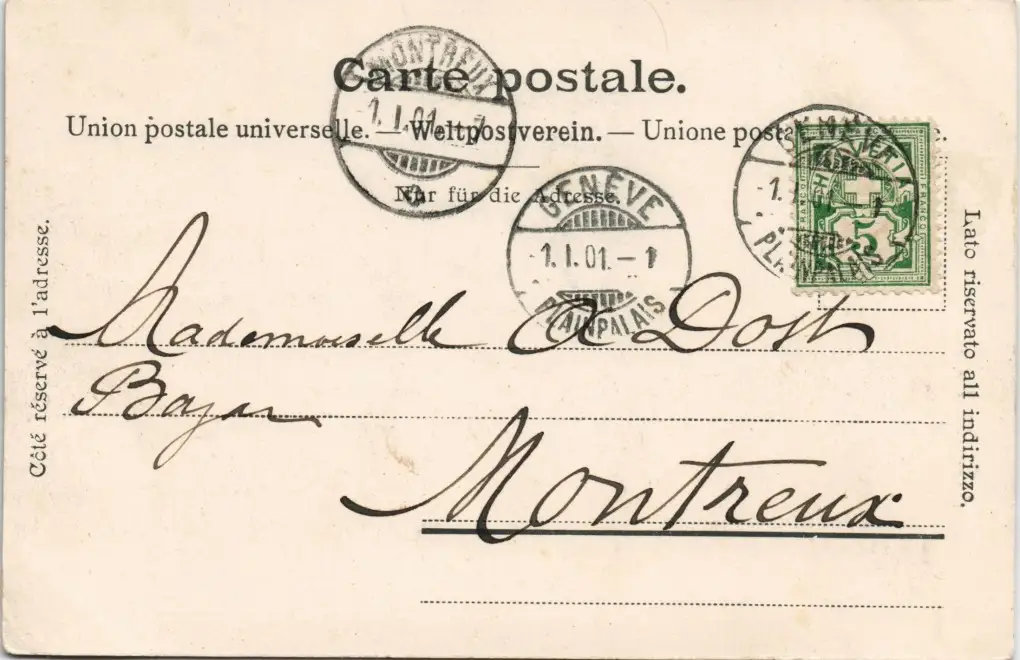 Carte postale.
Union postale universelle. — Weltpostverein. — Unione posta
Nur für die Adresse.
MONTREUX
-1.I.01.-
GENÈVE
-1.I.01.-1
PLAINPALAIS
-1.I.01 1
PLAINPALAIS
5
Côté réservé à l'adresse.
Mademoiselle A Dost
Montreux
Lato riservato all indirizzo.